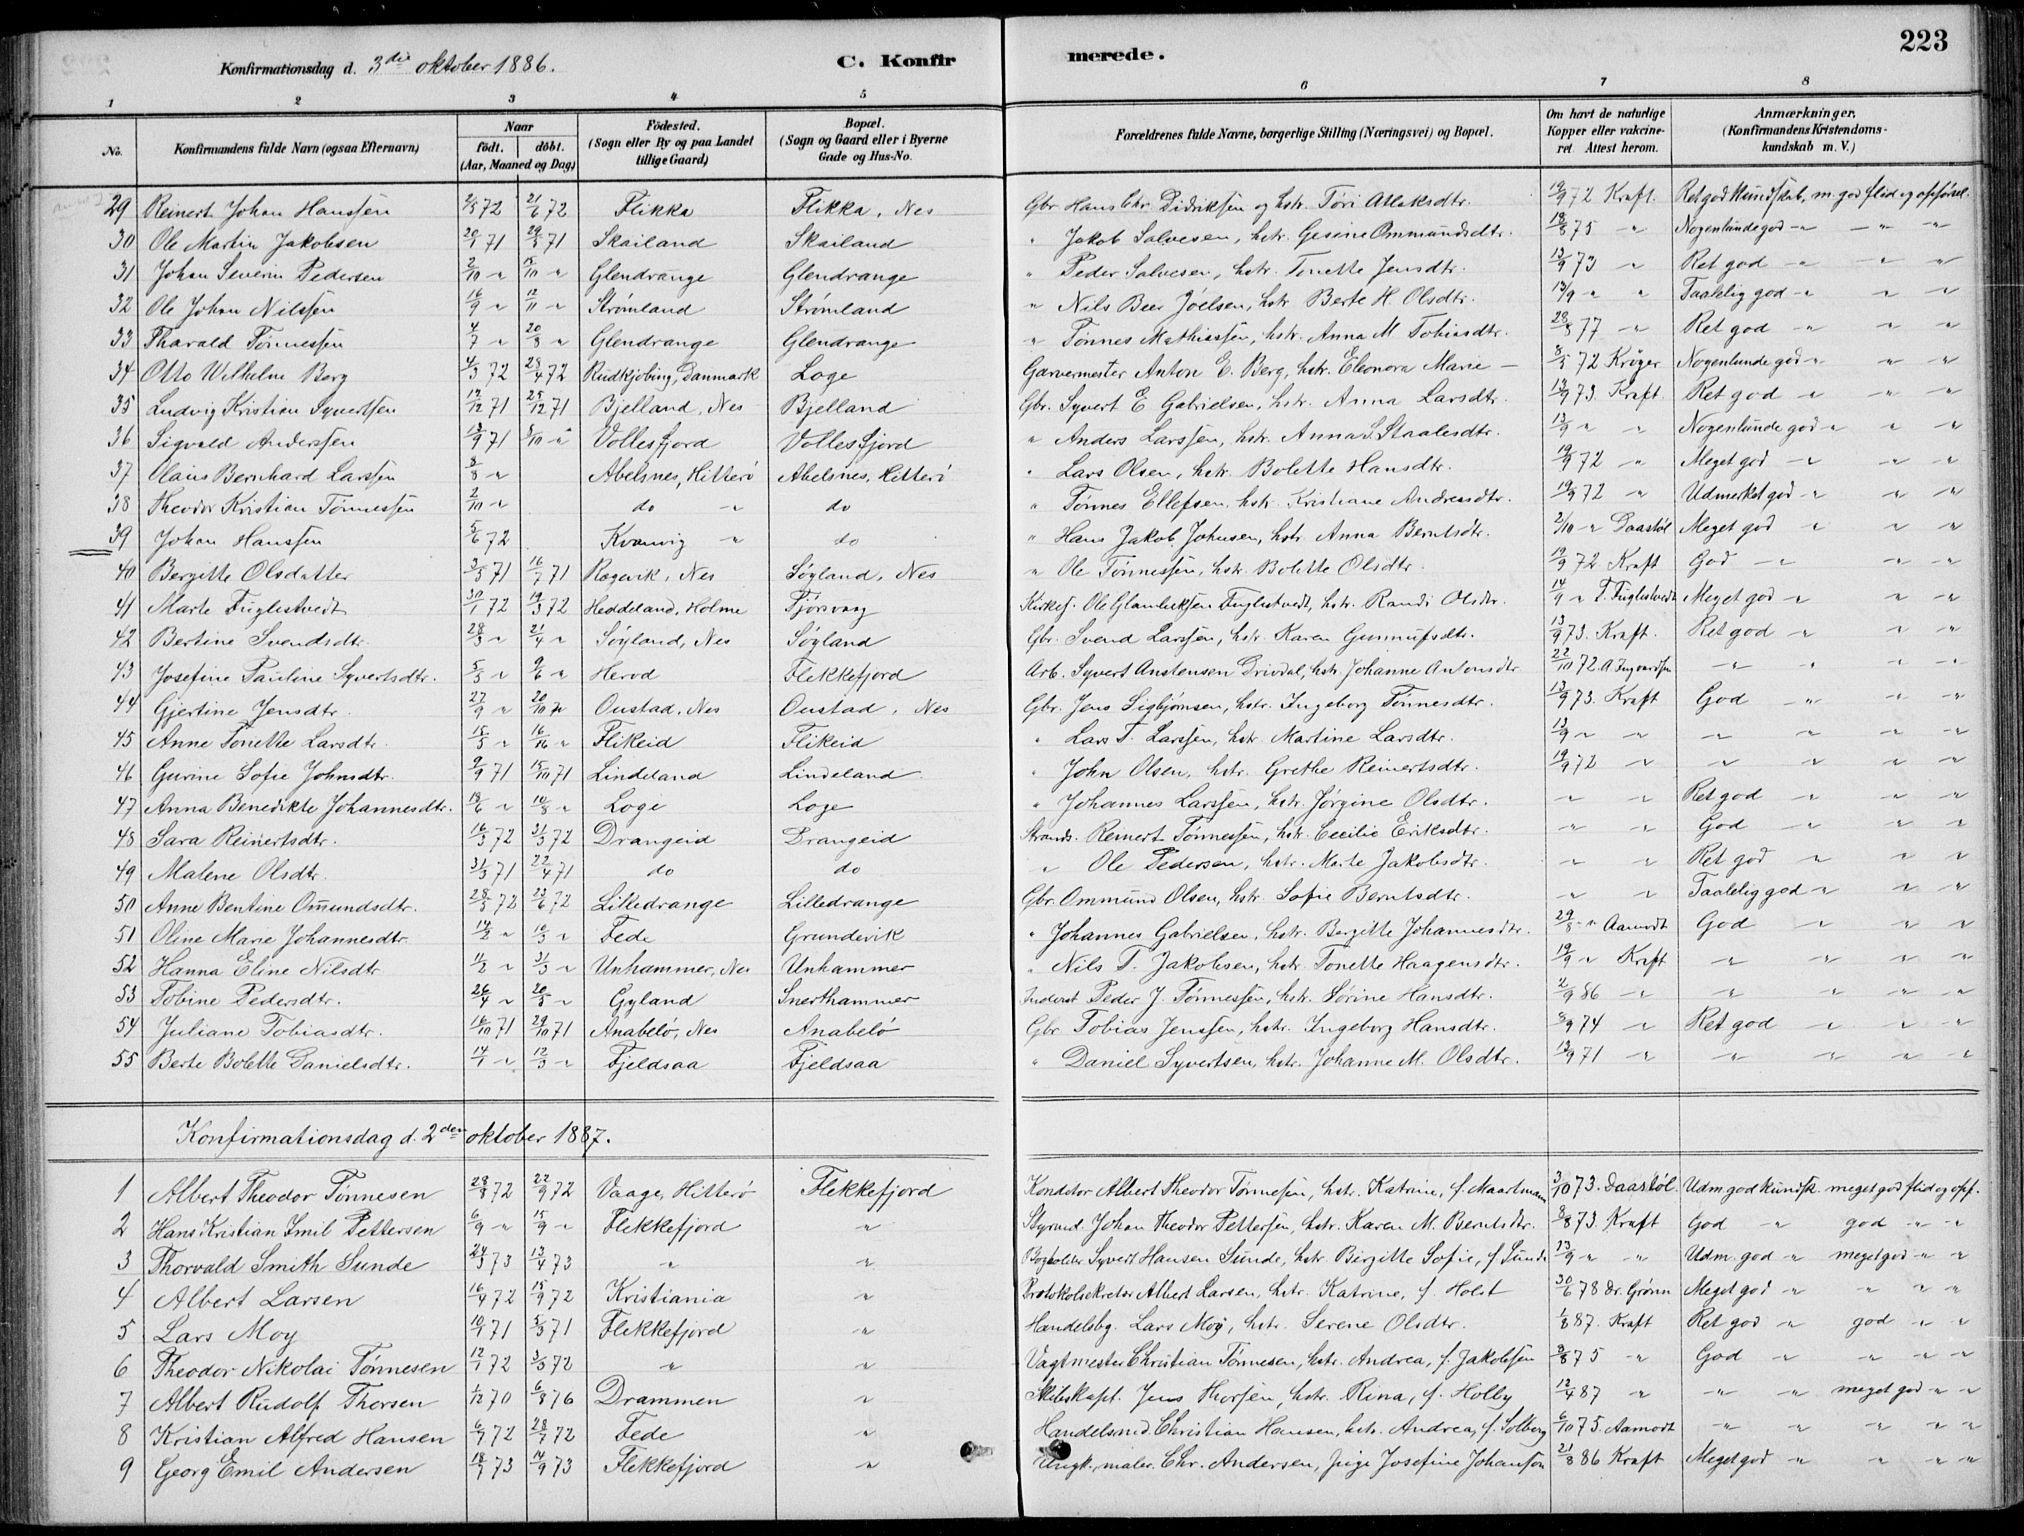 223
Konfirmationsdag d. 3die oktober 1886. C. Konfirmerede.
1 2 3 4 5 6 7 8
No. Konfirmandens fulde Navn (ogsaa Efternavn) Naar født. døbt. (Aar, Maaned og Dag) Fødested. (Sogn eller By og paa Landet tillige Gaard) Bopæl. (Sogn og Gaard eller i Byerne Gade og Hus-No. Forældrenes fulde Navne, borgerlige Stilling (Næringsvei) og Bopæl. Om havt de naturlige Kopper eller vakcineret. Attest herom. Anmærkninger. (Konfirmandens Kristendomskundskab m. V.)
29 Reinert Johan Hanssen 2/5 72 21/6 72 Flikka Flikka, Nes Gbr. Hans Chr. Didriksen og hstr. Tøri Atlaksdtr. 19/9 72 Kraft. Ret god kundskab, m. god flid og opførsel.
30 Ole Martin Jakobsen 20/1 71 29/5 71 Skailand Skailand " Jakob Salvesen, hstr. Gesine Ommundsdtr. 18/8 75 " Nogenlunde god " " "
31 Johan Severin Pedersen 2/10 " 15/10 " Glendrange Glendrange " Peder Salvesen, hstr. Tonette Jensdtr. 13/9 73 " Ret god " " "
32 Ole Johan Nilssen 16/9 " 12/11 " Strømland Strømland " Nils Beer Jöelsen, hstr. Berte H. Olsdtr. 13/9 " " Taalelig god " " "
33 Tharald Tønnessen 4/7 " 20/8 " Glendrange Glendrange " Tønnes Mathiassen, hstr. Anna M. Tobiasdtr. 28/8 77 " Ret god " " "
34 Otto Wilhelm Berg 4/3 72 28/4 72 Rudkjøbing, Danmark Loge Garvermester Anton E. Berg, hstr. Eleonora Marie — 8/5 72 Krøger Nogenlunde god " " "
35 Ludvig Kristian Syvertsen 12/12 71 25/12 71 Bjelland, Nes Bjelland Gbr. Syvert E. Gabrielsen, hstr. Anna Larsdtr. 13/9 73. Kraft Ret god " " "
36 Sigvald Anderssen 13/9 71 8/10 " Vollesfjord Vollesfjord " Anders Larssen, hstr. Anna S. Staalesdtr. 13/9 " " Nogenlunde god " " "
37 Olaus Bernhard Larssen 8/8 " Abelsnes, Hitterø Abelsnes, Hitterø " Lars Olsen, hstr. Bolette Hansdtr. 19/9 72 " Meget god " " "
38 Theodor Kristian Tønnessen 2/10 " do " do " Tønnes Ellefsen, hstr. Kristiane Andreasdtr. 19/9 72 " Udmerket god " " "
39 Johan Hanssen 5/6 72 Kvanvig " do " Hans Jakob Johnsen, hstr. Anna Berntsdtr. 2/10 " Daastøl Meget god " " "
40 Bergitte Olsdatter 3/5 71 16/7 71 Røgevik, Nes Søyland, Nes " Ole Tønnessen, hstr. Bolette Olsdtr. 19/9 72 Kraft God " " "
41 Marte Fuglestvedt 30/1 72 19/3 72 Heddeland, Holme Tjørsvaag Kirkes. Ole Glambeksen Fuglestvedt, hstr. Randi Olsdtr. 14/9 " T. Fuglestvedt Meget god " " "
42 Bertine Svendsdtr. 28/3 " 21/4 " Søyland, Nes Søyland Gbr. Svend Larssen, hstr. Karen Gunnufsdtr. 13/9 73. Kraft. Ret god " " "
43 Josefine Pauline Syvertsdtr. 5/5 " 9/6 " Herod Flekkefjord Arb. Syvert Anstensen Drivdal, hstr. Johanne Antonsdtr 22/10 72. A. Ingvardsen " " " "
44 Gjertine Jensdtr. 27/9 " 20/10 " Oustad, Nes Oustad, Nes Gbr. Jens Sigbjørnsen, hstr. Ingeborg Tønnesdtr. 13/9 73. Kraft God " " "
45 Anne Tonette Larsdtr. 15/5 " 16/10 " Flikeid Flikeid " Lars T. Larssen, hstr. Martine Larsdtr. 13/9 " " " " " "
46 Gurine Sofie Johnsdtr. 9/9 71 15/10 71 Lindeland Lindeland " John Olsen, hstr. Grethe Reinertsdtr. 19/9 72 " " " " "
47 Anna Benedikte Johannesdtr. 18/6 " 10/8 " Loge Loge " Johannes Larssen, hstr. Jørgine Olsdtr. " " Ret god " " "
48 Sara Reinertsdtr. 16/3 72 31/3 72 Drangeid Drangeid Strands. Reinert Tønnessen, hstr. Cecilie Eriksdtr. " " God " " "
49 Malene Olsdtr. 31/3 71 22/4 71 do do " Ole Pedersen, hstr. Marte Jakobsdtr. " " Ret god " " "
50 Anne Bentine Omundsdtr. 28/5 72 23/6 72 Lilledrange Lilledrange Gbr. Ommund Olsen, hstr. Sofie Berntsdtr. " " Taalelig god " " "
51 Oline Marie Johannesdtr. 14/2 " 10/3 " Fede Grundevik " Johannes Gabrielsen, hstr. Bergitte Johannesdtr. 29/8 " Aamodt God " " "
52 Hanna Eline Nilsdtr. 11/2 " 31/3 " Unhammer, Nes Unhammer " Nils T. Jakobsen, hstr. Tonette Haagensdtr. 19/9 " Kraft " " " "
53 Tobine Pedersdtr. 26/4 " 20/5 " Gyland Snerthammer Inderst Peder J. Tønnessen, hstr. Sørine Hansdtr. 2/9 86 " " " " "
54 Juliane Tobiasdtr. 16/10 71 29/10 71 Anabelø, Nes Anabelø Gbr Tobias Jenssen, hstr. Ingeborg Hansdtr. 8/9 74 " Ret god " " "
55 Berte Bolette Danielsdtr. 14/1 " 12/3 " Fjeldsaa Fjeldsaa " Daniel Syvertsen, hstr. Johanne M. Olsdtr. 13/9 71 " " " " "
Konfirmationsdag d. 2den oktober 1887.
1 Albert Theodor Tønnesen 28/8 72 22/9 72 Vaage, Hitterø Flekkefjord Konditor Albert Theodor Tønnesen, hstr. Katrine, f. Maartmann 3/10 73. Daastøl. Udm. god kundsk. meget god flid og opf.
2 Hans Kristian Emil Pettersen 6/9 " 15/9 " Flekkefjord " Styrmd. Johan Theodor Pettersen, hstr. Karen M. Berntsdtr. 8/8 73. Kraft God " god " "
3 Thorvald Smith Sunde 24/3 73 13/4 73 " " Bogholder Syvert Hansen Sunde, hstr. Birgitte Sofie, f. Sunde 13/9 " " Udm. god " meget god " "
4 Albert Larsen 16/4 72 15/9 72 Kristiania " Protokolsekretær Albert Larsen, hstr. Katrine, f. Holst 30/6 78 Dr. Grønn Meget god " " " "
5 Lars Moy 10/1 71 5/3 71 Flekkefjord " Handelsbg. Lars Moy, hstr. Serene Olsdtr. 1/8 87. Kraft Ret god " god " "
6 Theodor Nikolai Tønnesen 12/1 72 3/3 72 " " Vagtmester Christian Tønnesen, hstr. Andrea, f. Jakobsen 3/8 75 " God " " " "
7 Albert Rudolf Thorsen 1/12 70 6/8 76 Drammen " Skibskapt. Jens Thorsen, hstr. Rina, f. Holby 12/4 87 " " " meget god " "
8 Kristian Alfred Hansen 6/7 72 28/7 72 Fede " Handelsmd. Christian Hansen, hstr. Andrea, f. Solberg 6/10 75. Aamodt " " " " "
9 Georg Emil Andersen 18/7 73 14/9 73 Flekkefjord " Ungk., maler Chr. Andersen, Pige Josefine Johansen 21/8 86 Kraft Meget god " " " "